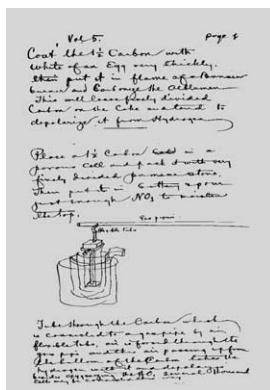 Vol 5. Page 8
Coat the 1½ Carbon with
white of an Egg very thickly.
then put it in flame of a Bunsen
burner and Carbonize the Albumen
This will leave finely divided
Carbon on the Coke and tend to
depolarize it from Hydrogen
Place a 1½ Carbon in a
porous Cell and pack it with very
finely divided pumice stone.
Then put it in battery & pour
just enough NO5 to moisten
the top.
Gas pipe
Tube through the Carbon which
is connected to a gas pipe by
flexible tube, air is forced through the
gas pipe and the air passing up from
the bottom of the Carbon takes the
hydrogen with it and depolarizes
several thousand
cells may be